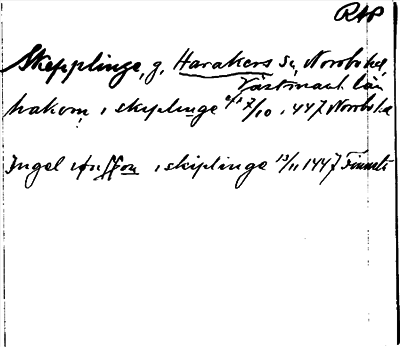 RAP
Skepplinge, g, Harakers Sn, Norrbo hd,
Västmanl. län
hakom i skiplinge 7/10 1447 Norrbo hd
Ingel i skiplinge 13/11 1447